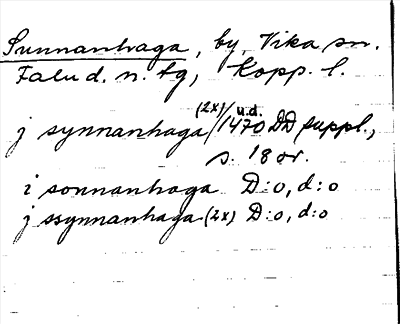 Sunnanhaga, by, Vika sn.
Falu d. n. tg, Kopp. l.
j synnanhaga (2x) / u.d. 1470 DD suppl.,
s. 18 or.
i sonnanhaga D:o, d:o
j ssynnanhaga (2x) D:o, d:o